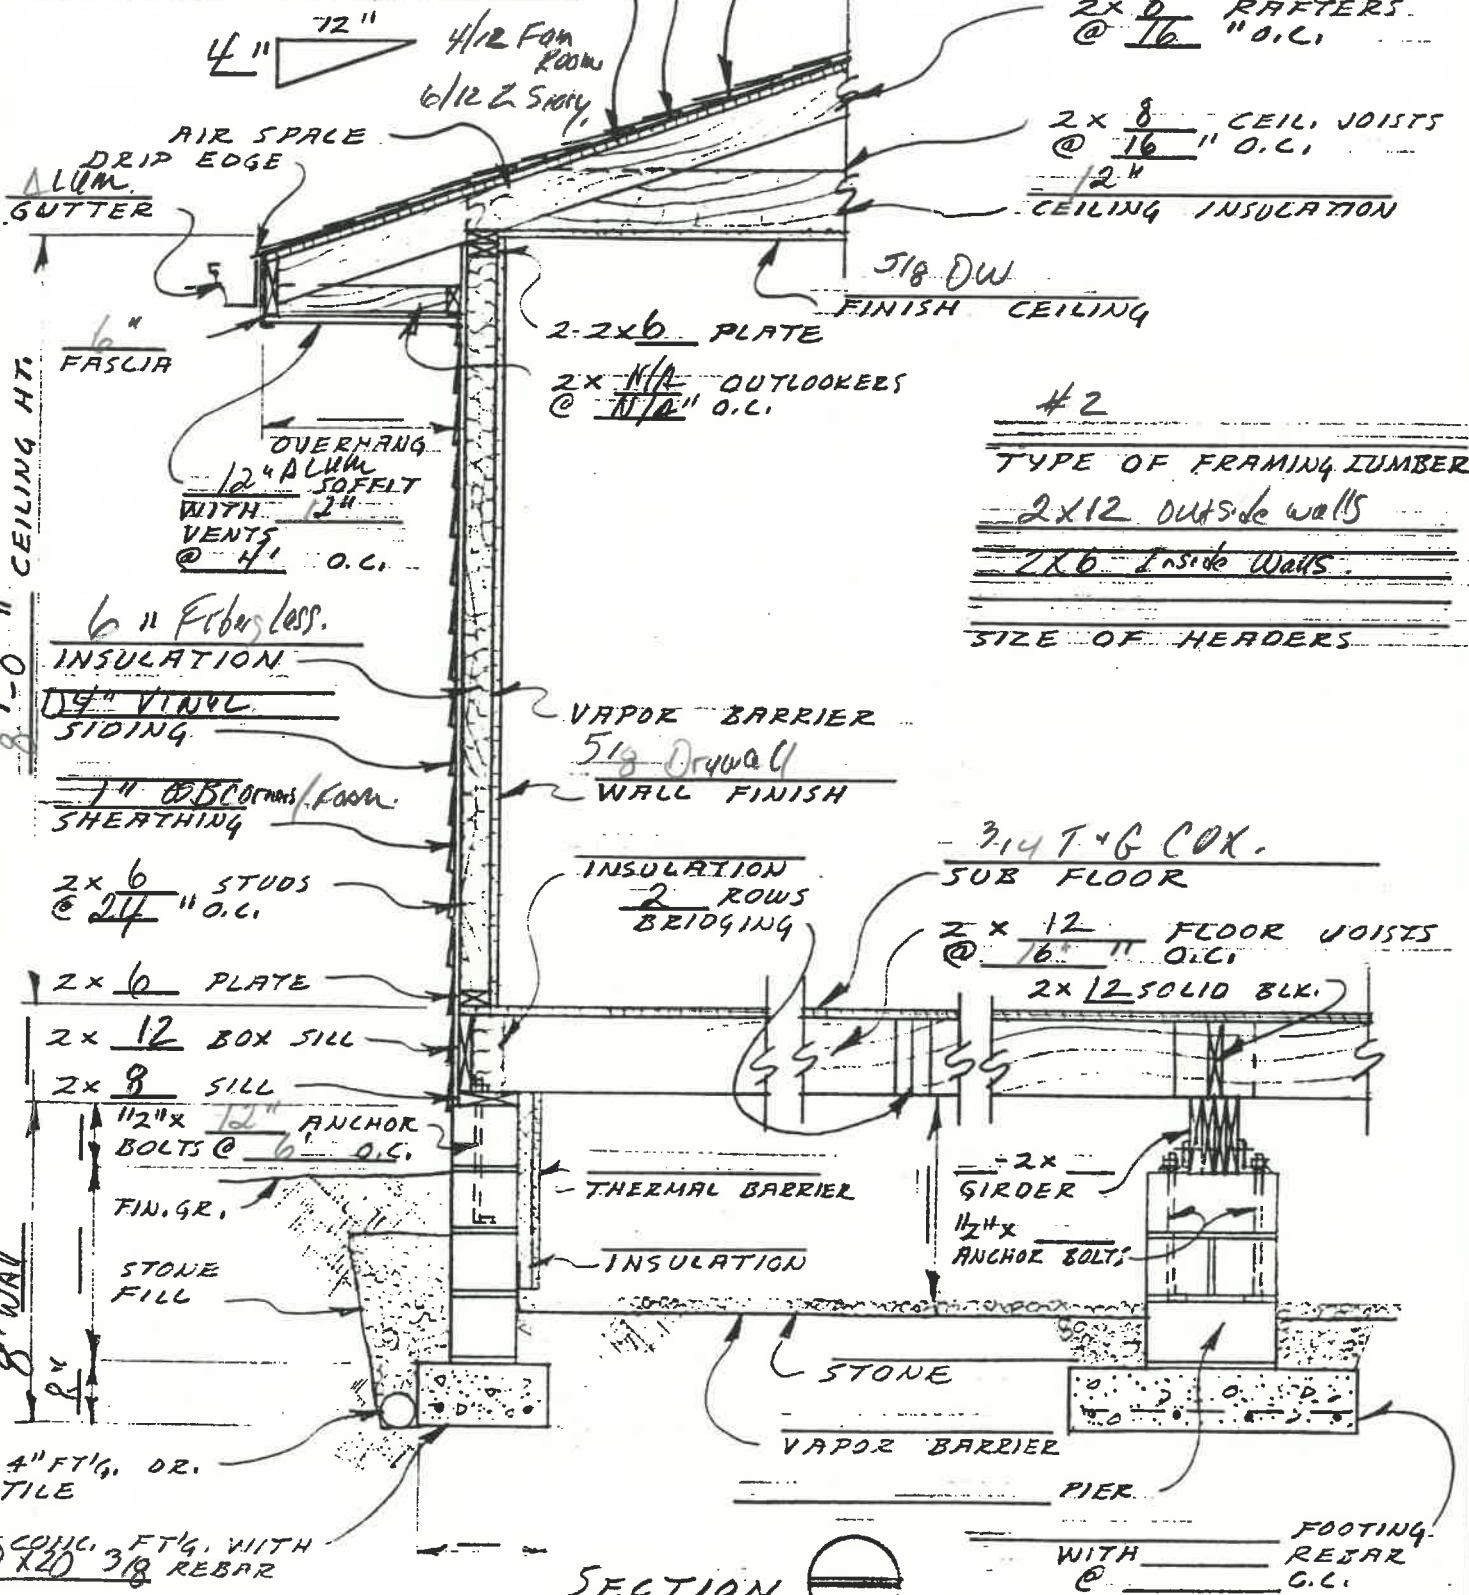 12"
4"
4/12 Fam
Room
6/12 2 Story
2 x 8 RAFTERS
@ 16 " O.C.
AIR SPACE
DRIP EDGE
ALUM.
GUTTER
2 x 8 CEIL. JOISTS
@ 16 " O.C.
12"
CEILING INSULATION
5/8 DW
FINISH CEILING
6"
FASCIA
2-2x6 PLATE
2 x N/A OUTLOOKERS
@ N/A" O.C.
OVERHANG
12" ALUM
SOFFIT
WITH 12"
VENTS
@ 4' O.C.
8'-0" CEILING HT.
#2
TYPE OF FRAMING LUMBER
2X12 outside walls
2X6 Inside Walls.
SIZE OF HEADERS
6" Fiberglass.
INSULATION
D4" VINYL
SIDING
1" OSB Corners/Foam.
SHEATHING
VAPOR BARRIER
5/8 Drywall
WALL FINISH
2 x 6 STUDS
@ 24 " O.C.
INSULATION
2 ROWS
BRIDGING
3/4 T&G CDX.
SUB FLOOR
2 x 12 FLOOR JOISTS
@ 16" " O.C.
2x 12 SOLID BLK.
2 x 6 PLATE
2 x 12 BOX SILL
2 x 8 SILL
1/2" x 12" ANCHOR
BOLTS @ 6' O.C.
FIN. GR.
THERMAL BARRIER
-2x
GIRDER
1/2" x
ANCHOR BOLTS
STONE
FILL
INSULATION
8' WALL
8"
STONE
VAPOR BARRIER
4" FT'G. DR.
TILE
PIER
CONC. FT'G. WITH
X20 3/8 REBAR
FOOTING
WITH REBAR
@ O.C.
SECTION